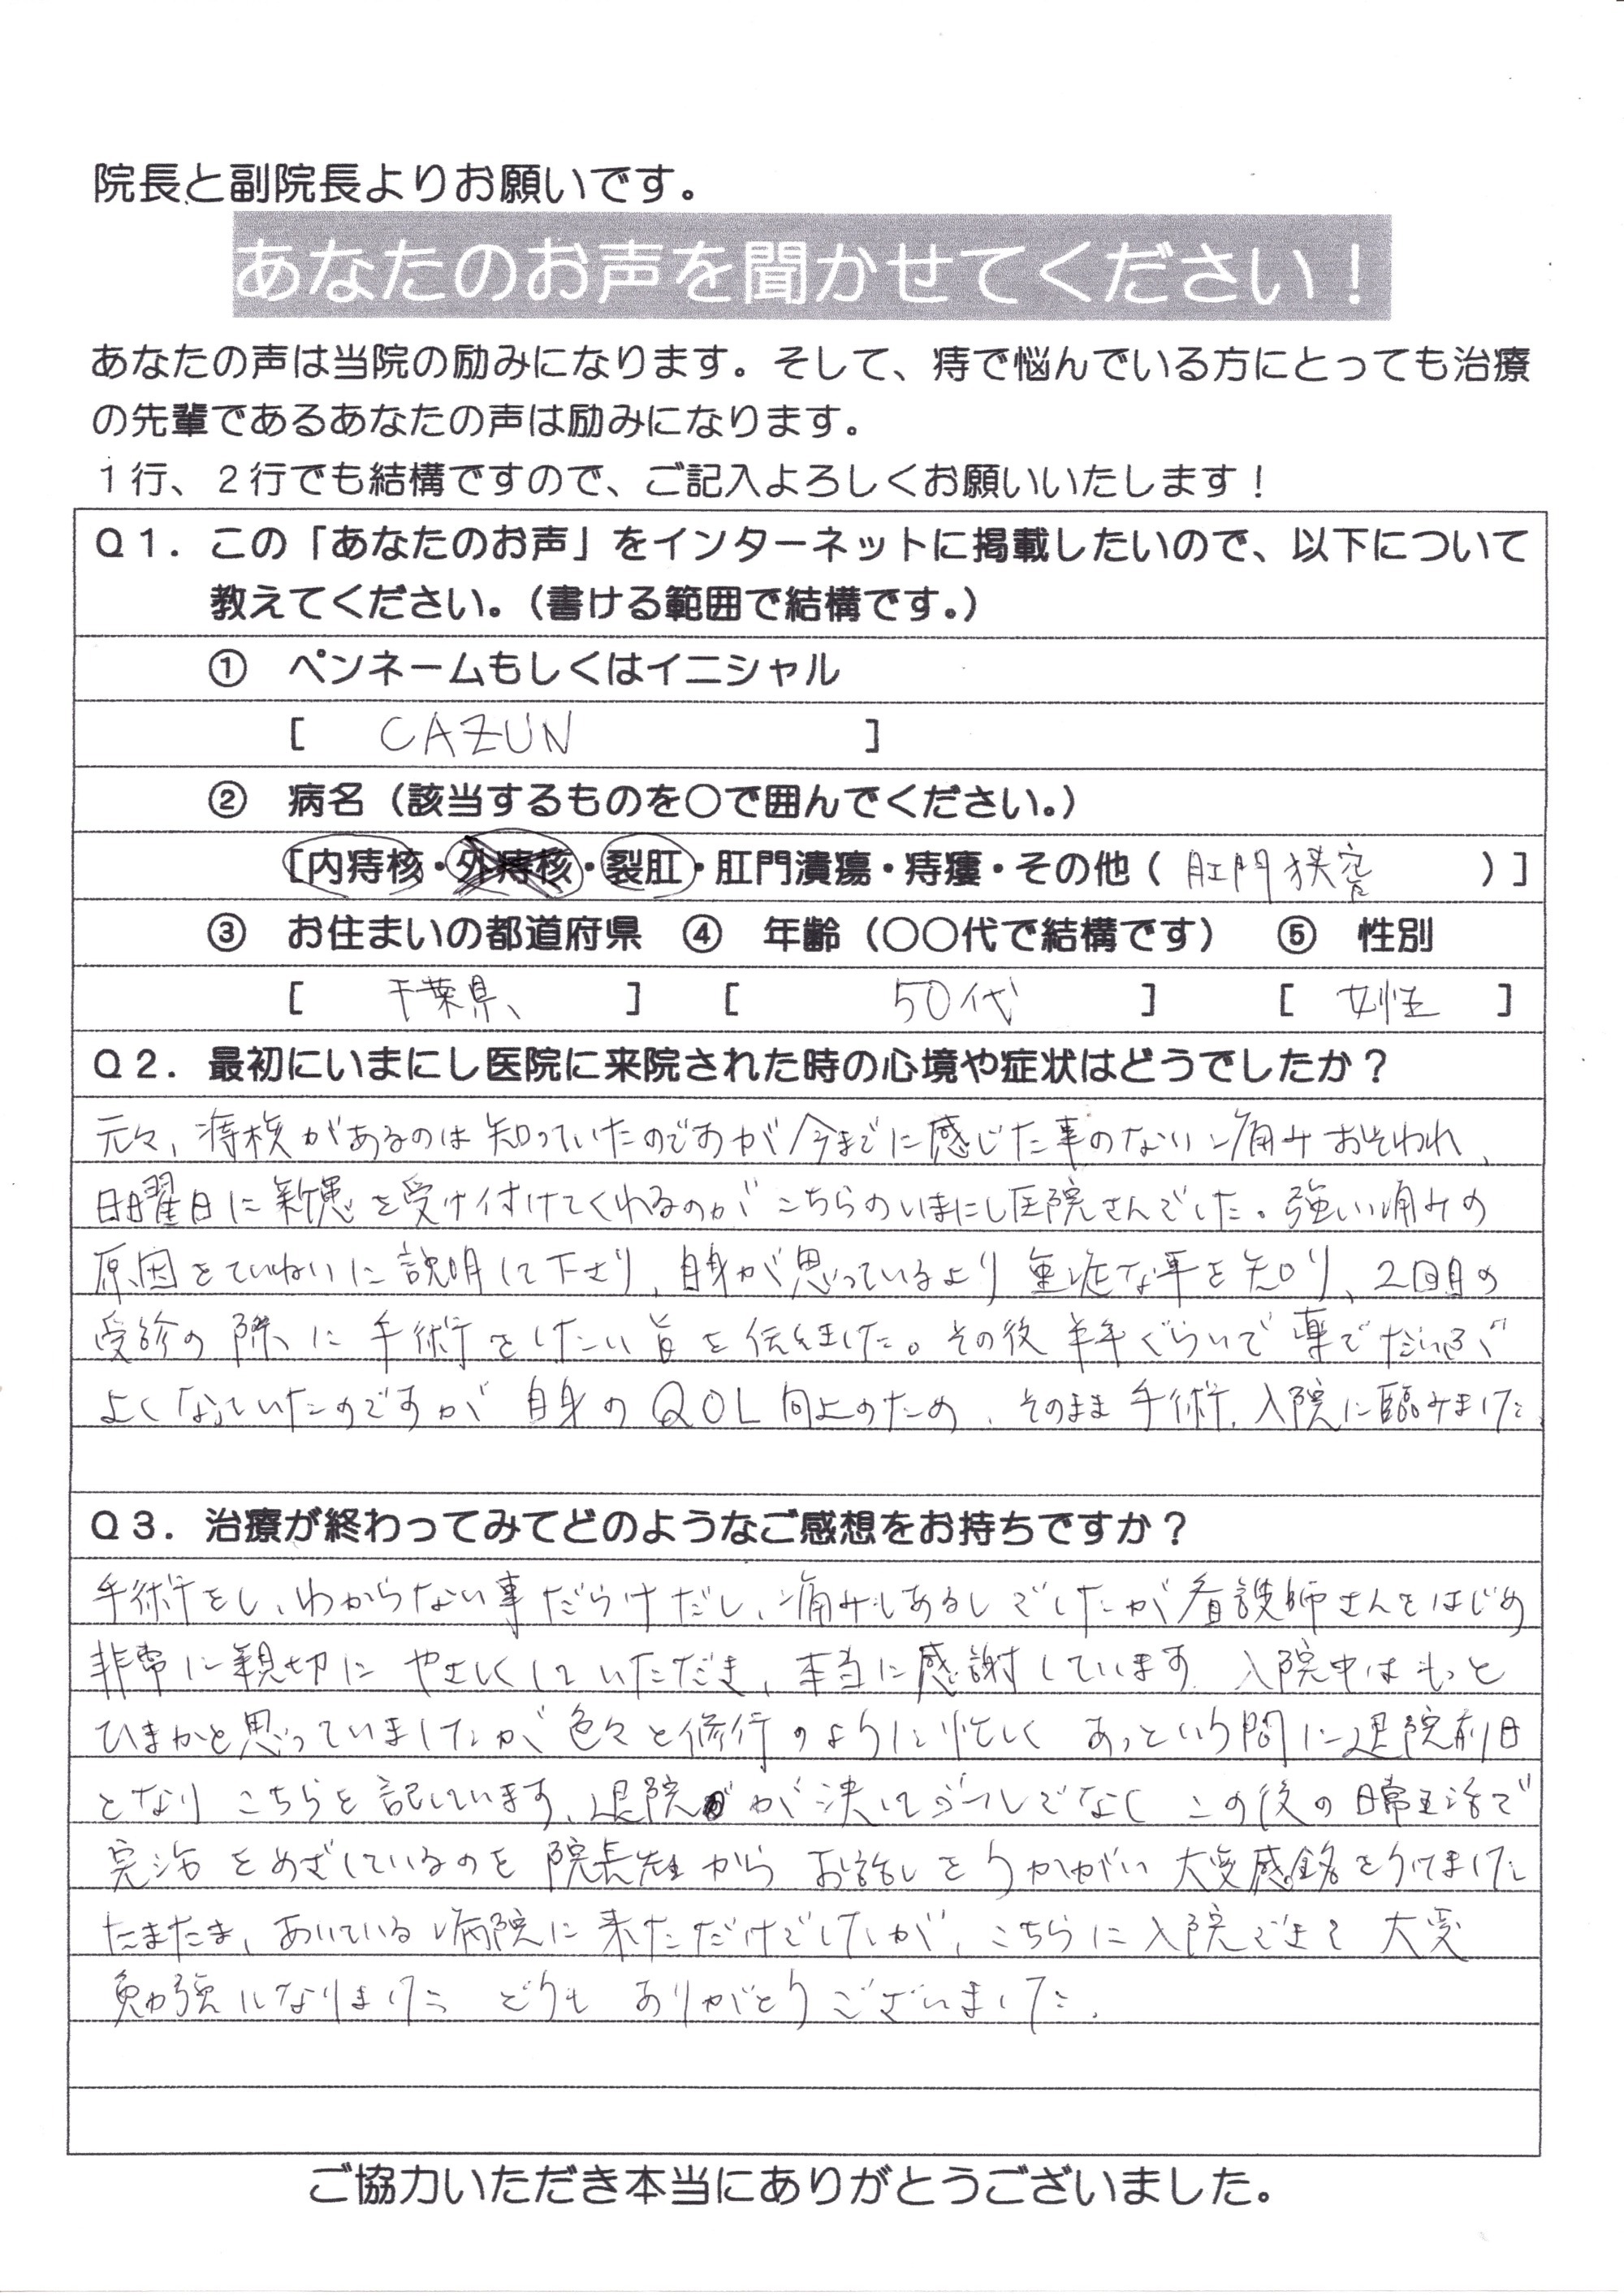 院長と副院長よりお願いです。
あなたのお声を聞かせてください！
あなたの声は当院の励みになります。そして、痔で悩んでいる方にとっても治療
の先輩であるあなたの声は励みになります。
１行、２行でも結構ですので、ご記入よろしくお願いいたします！
Ｑ１．この「あなたのお声」をインターネットに掲載したいので、以下について
教えてください。（書ける範囲で結構です。）
①　ペンネームもしくはイニシャル
［　CAZUN　］
②　病名（該当するものを○で囲んでください。）
［内痔核・外痔核・裂肛・肛門潰瘍・痔瘻・その他（肛門狭窄　）］
③　お住まいの都道府県　④　年齢（○○代で結構です）　⑤　性別
［　千葉県、　］　［　50代　］　［　女性　］
Ｑ２．最初にいまにし医院に来院された時の心境や症状はどうでしたか？
元々、痔核があるのは知っていたのですが今までに感じた事のない痛みおそわれ、
日曜日に新患を受け付けてくれるのがこちらのいまにし医院さんでした。強い痛みの
原因をていねいに説明して下さり、自身が思っているより重症な事を知り、2回目の
受診の際に手術をしたい旨を伝えました。その後半年ぐらいで薬でだいぶ
よくなっていたのですが自身のQOL向上のため、そのまま手術、入院に臨みました
Ｑ３．治療が終わってみてどのようなご感想をお持ちですか？
手術をし、わからない事だらけだし、痛みもあるしでしたが看護師さんをはじめ
非常に親切にやさしくしていただき、本当に感謝しています 入院中はもっと
ひまかと思っていましたが色々と修行のように忙しくあっという間に退院前日
となりこちらを記しています、退院が決してゴールでなくこの後の日常生活で
完治をめざしているのを院長先生からお話しをうかがい大変感銘をうけました
たまたま、あいている病院に来ただけでしたが、こちらに入院できて大変
勉強になりました どうもありがとうございました。
ご協力いただき本当にありがとうございました。